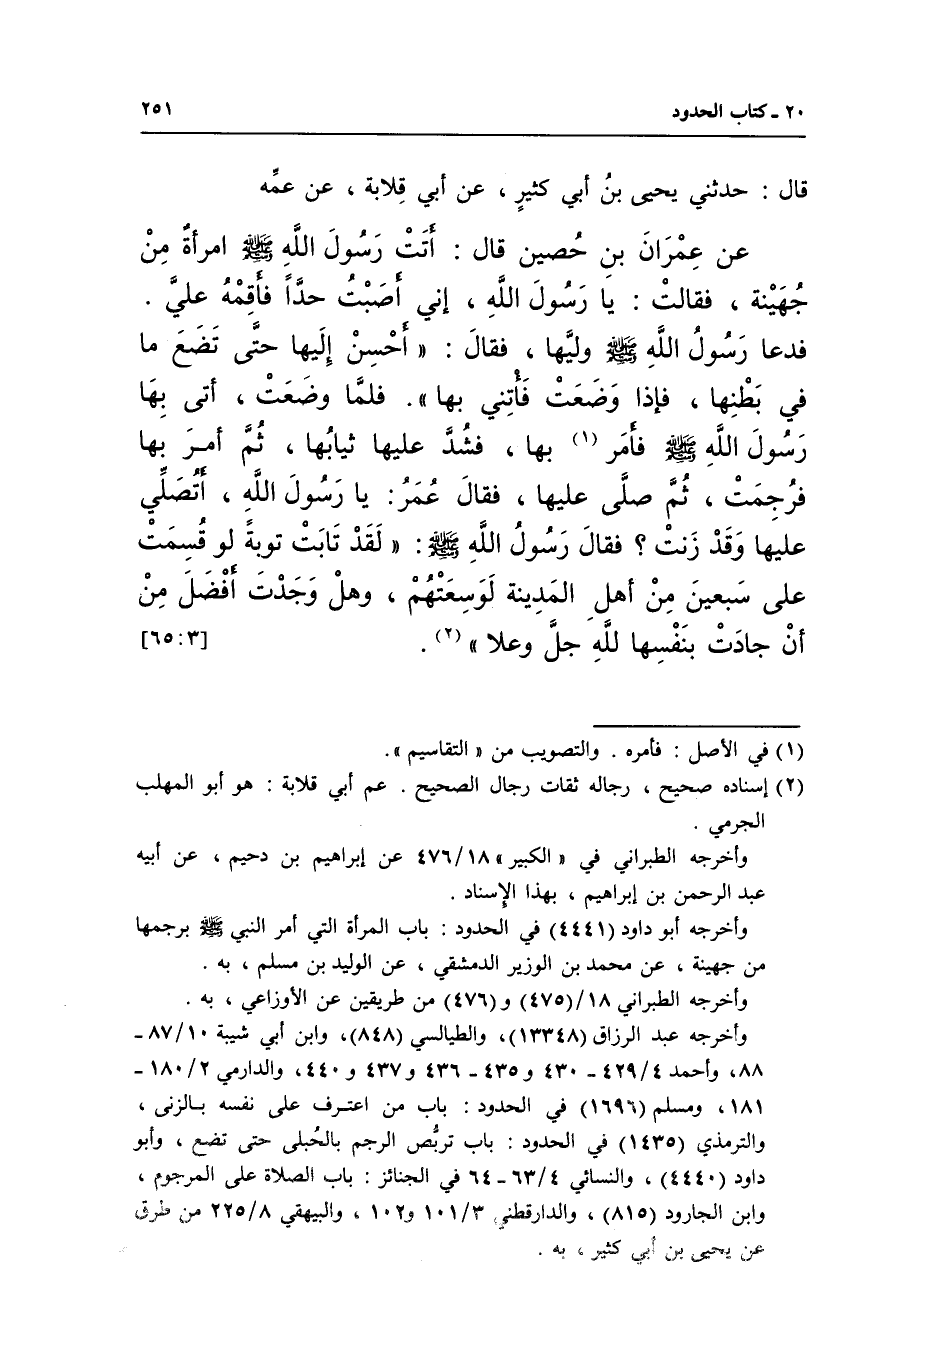 ٢٠ ـ كتاب الحدود ٢٥١
قال : حدثني يحيى بنُ أبي كثيرٍ ، عن أبي قِلابة ، عن عمِّه
عن عِمْرَانَ بن حُصين قال : أَتَتْ رَسُولَ اللَّهِ ﷺ امرأةٌ مِنْ
جُهَيْنة ، فقالتْ : يا رَسُولَ اللَّهِ ، إني أَصَبْتُ حدَّاً فأَقِمْهُ عليَّ .
فدعا رَسُولُ اللَّهِ ﷺ وليَّها ، فقالَ : « أَحْسِنْ إِلَيها حتَّى تَضَعَ ما
في بَطْنِها ، فإذا وَضَعَتْ فَأْتِني بها ». فلمَّا وضَعَتْ ، أتى بِهَا
رَسُولَ اللَّهِ ﷺ فأَمَر (١) بها ، فشُدَّ عليها ثيابُها ، ثُمَّ أمـرَ بها
فرُجِمَتْ ، ثُمَّ صلَّى عليها ، فقالَ عُمَرُ: يا رَسُولَ اللَّهِ ، أَتُصَلِّي
عليها وَقَدْ زَنتْ ؟ فقالَ رَسُولُ اللَّهِ ﷺ: « لَقَدْ تَابَتْ توبةً لو قُسِمَتْ
على سَبعينَ مِنْ أهلِ المَدِينة لَوَسِعَتْهُمْ ، وهلْ وَجَدْتَ أَفْضَلَ مِنْ
أنْ جادَتْ بنَفْسِها للَّهِ جلَّ وعلا » (٢) . [٦٥:٣]
(١) في الأصل : فأمره . والتصويب من « التقاسيم ».
(٢) إسناده صحيح ، رجاله ثقات رجال الصحيح . عم أبي قلابة : هو أبو المهلب
الجرمي .
وأخرجه الطبراني في « الكبير » ٤٧٦/١٨ عن إبراهيم بن دحيم ، عن أبيه
عبد الرحمن بن إبراهيم ، بهذا الإسناد .
وأخرجه أبو داود (٤٤٤١) في الحدود : باب المرأة التي أمر النبي ﷺ برجمها
من جهينة ، عن محمد بن الوزير الدمشقي ، عن الوليد بن مسلم ، به .
وأخرجه الطبراني ١٨/(٤٧٥) و(٤٧٦) من طريقين عن الأوزاعي ، به .
وأخرجه عبد الرزاق (١٣٣٤٨)، والطيالسي (٨٤٨)، وابن أبي شيبة ٨٧/١٠ ـ
٨٨، وأحمد ٤٢٩/٤ ـ ٤٣٠ و٤٣٥ ـ ٤٣٦ و٤٣٧ و٤٤٠، والدارمي ١٨٠/٢ ـ
١٨١، ومسلم (١٦٩٦) في الحدود : باب من اعتـرف على نفسه بـالزنى ،
والترمذي (١٤٣٥) في الحدود : باب تربُّص الرجم بالحُبلى حتى تضع ، وأبو
داود (٤٤٤٠) ، والنسائي ٦٣/٤ ـ ٦٤ في الجنائز : باب الصلاة على المرجوم ،
وابن الجارود (٨١٥) ، والدارقطني ١٠١/٣ و١٠٢ ، والبيهقي ٢٢٥/٨ من طرق
عن يحيى بن أبي كثير ، به .